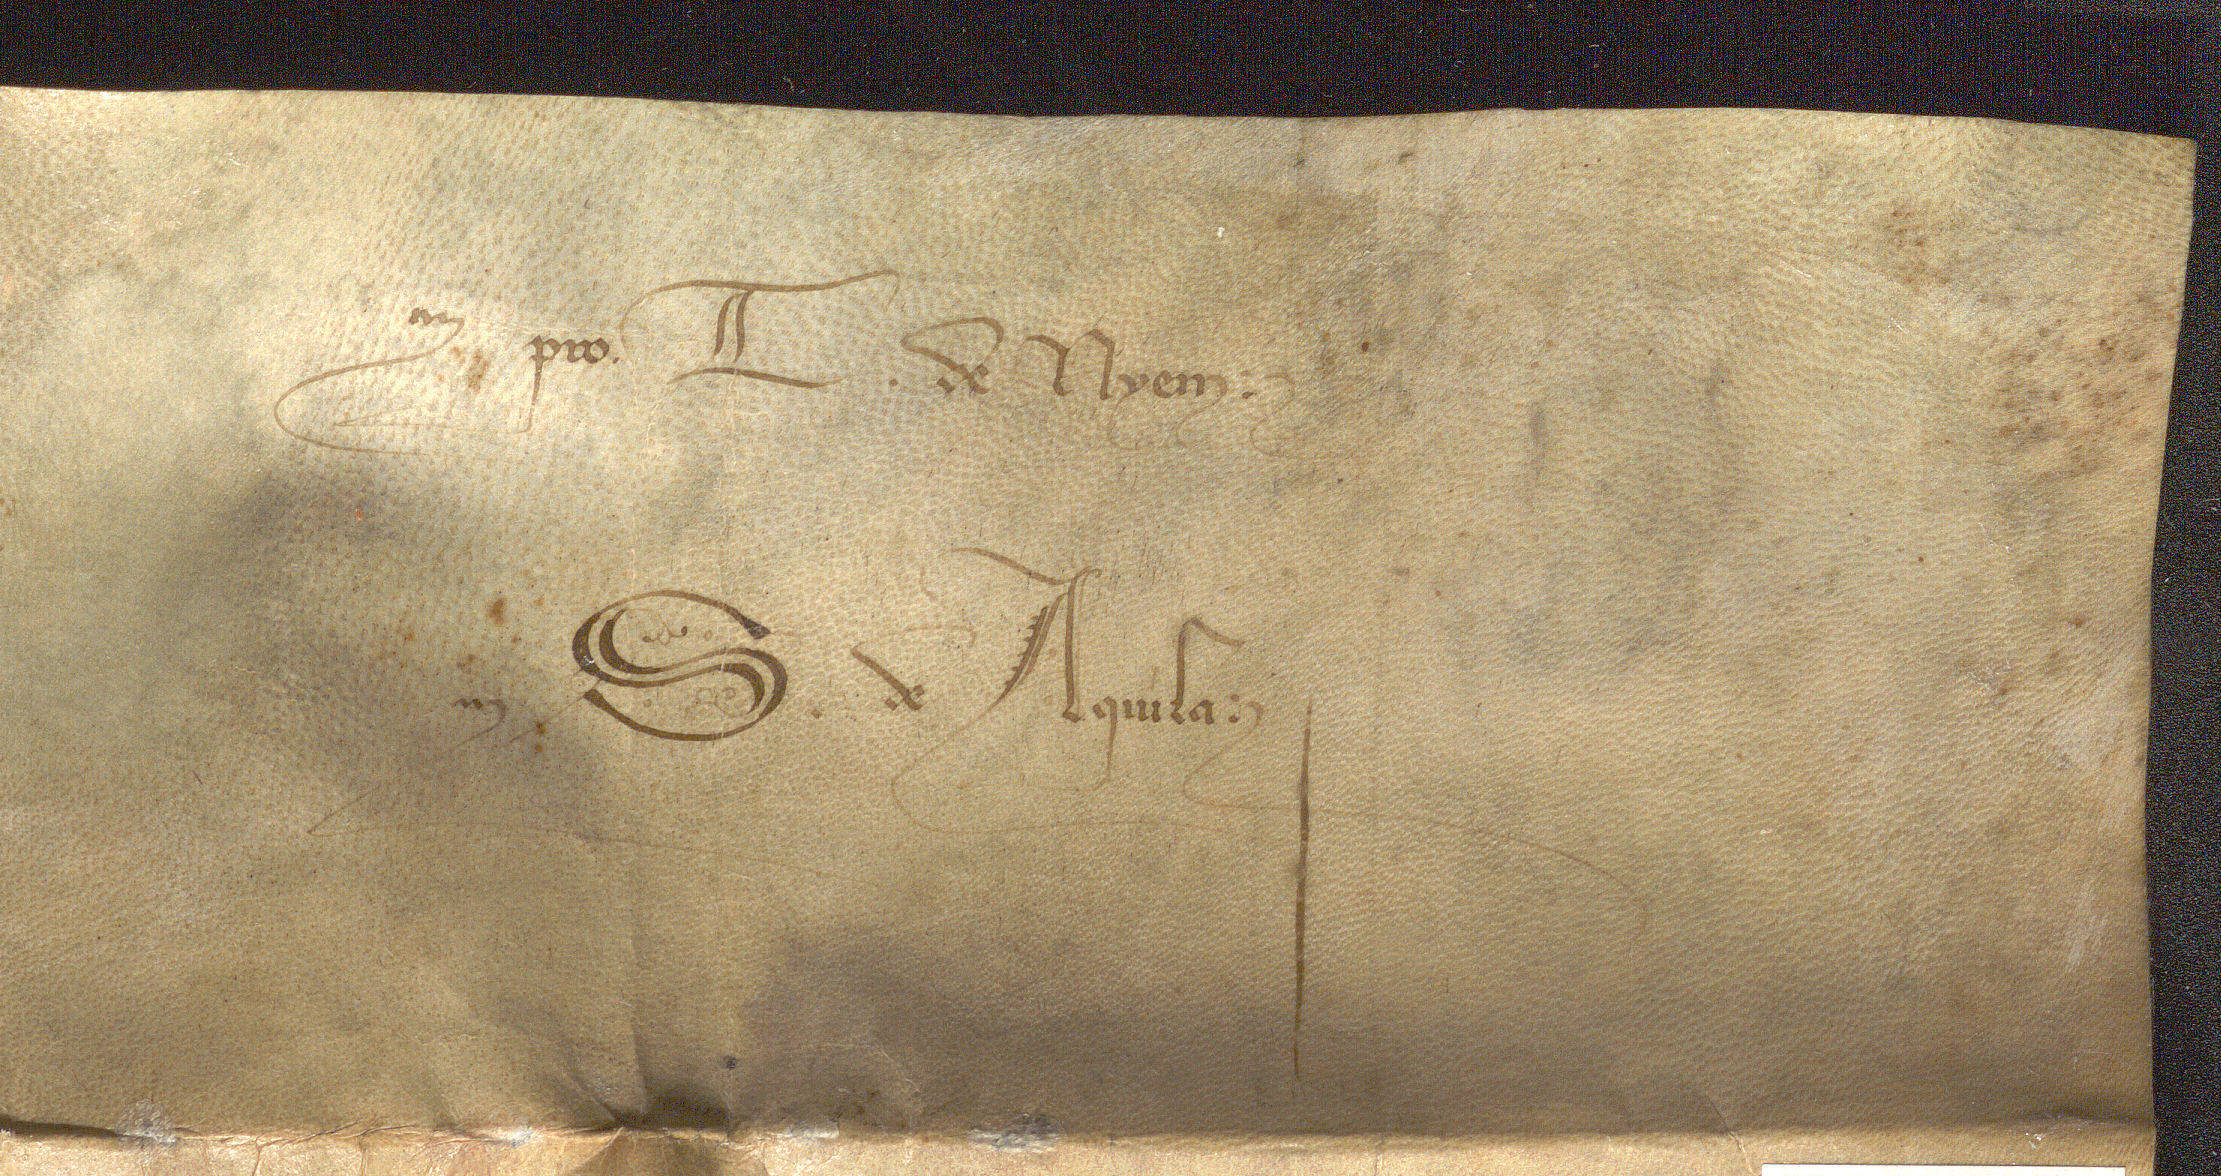 pro. T. de Nyem:
S. de Aquila: